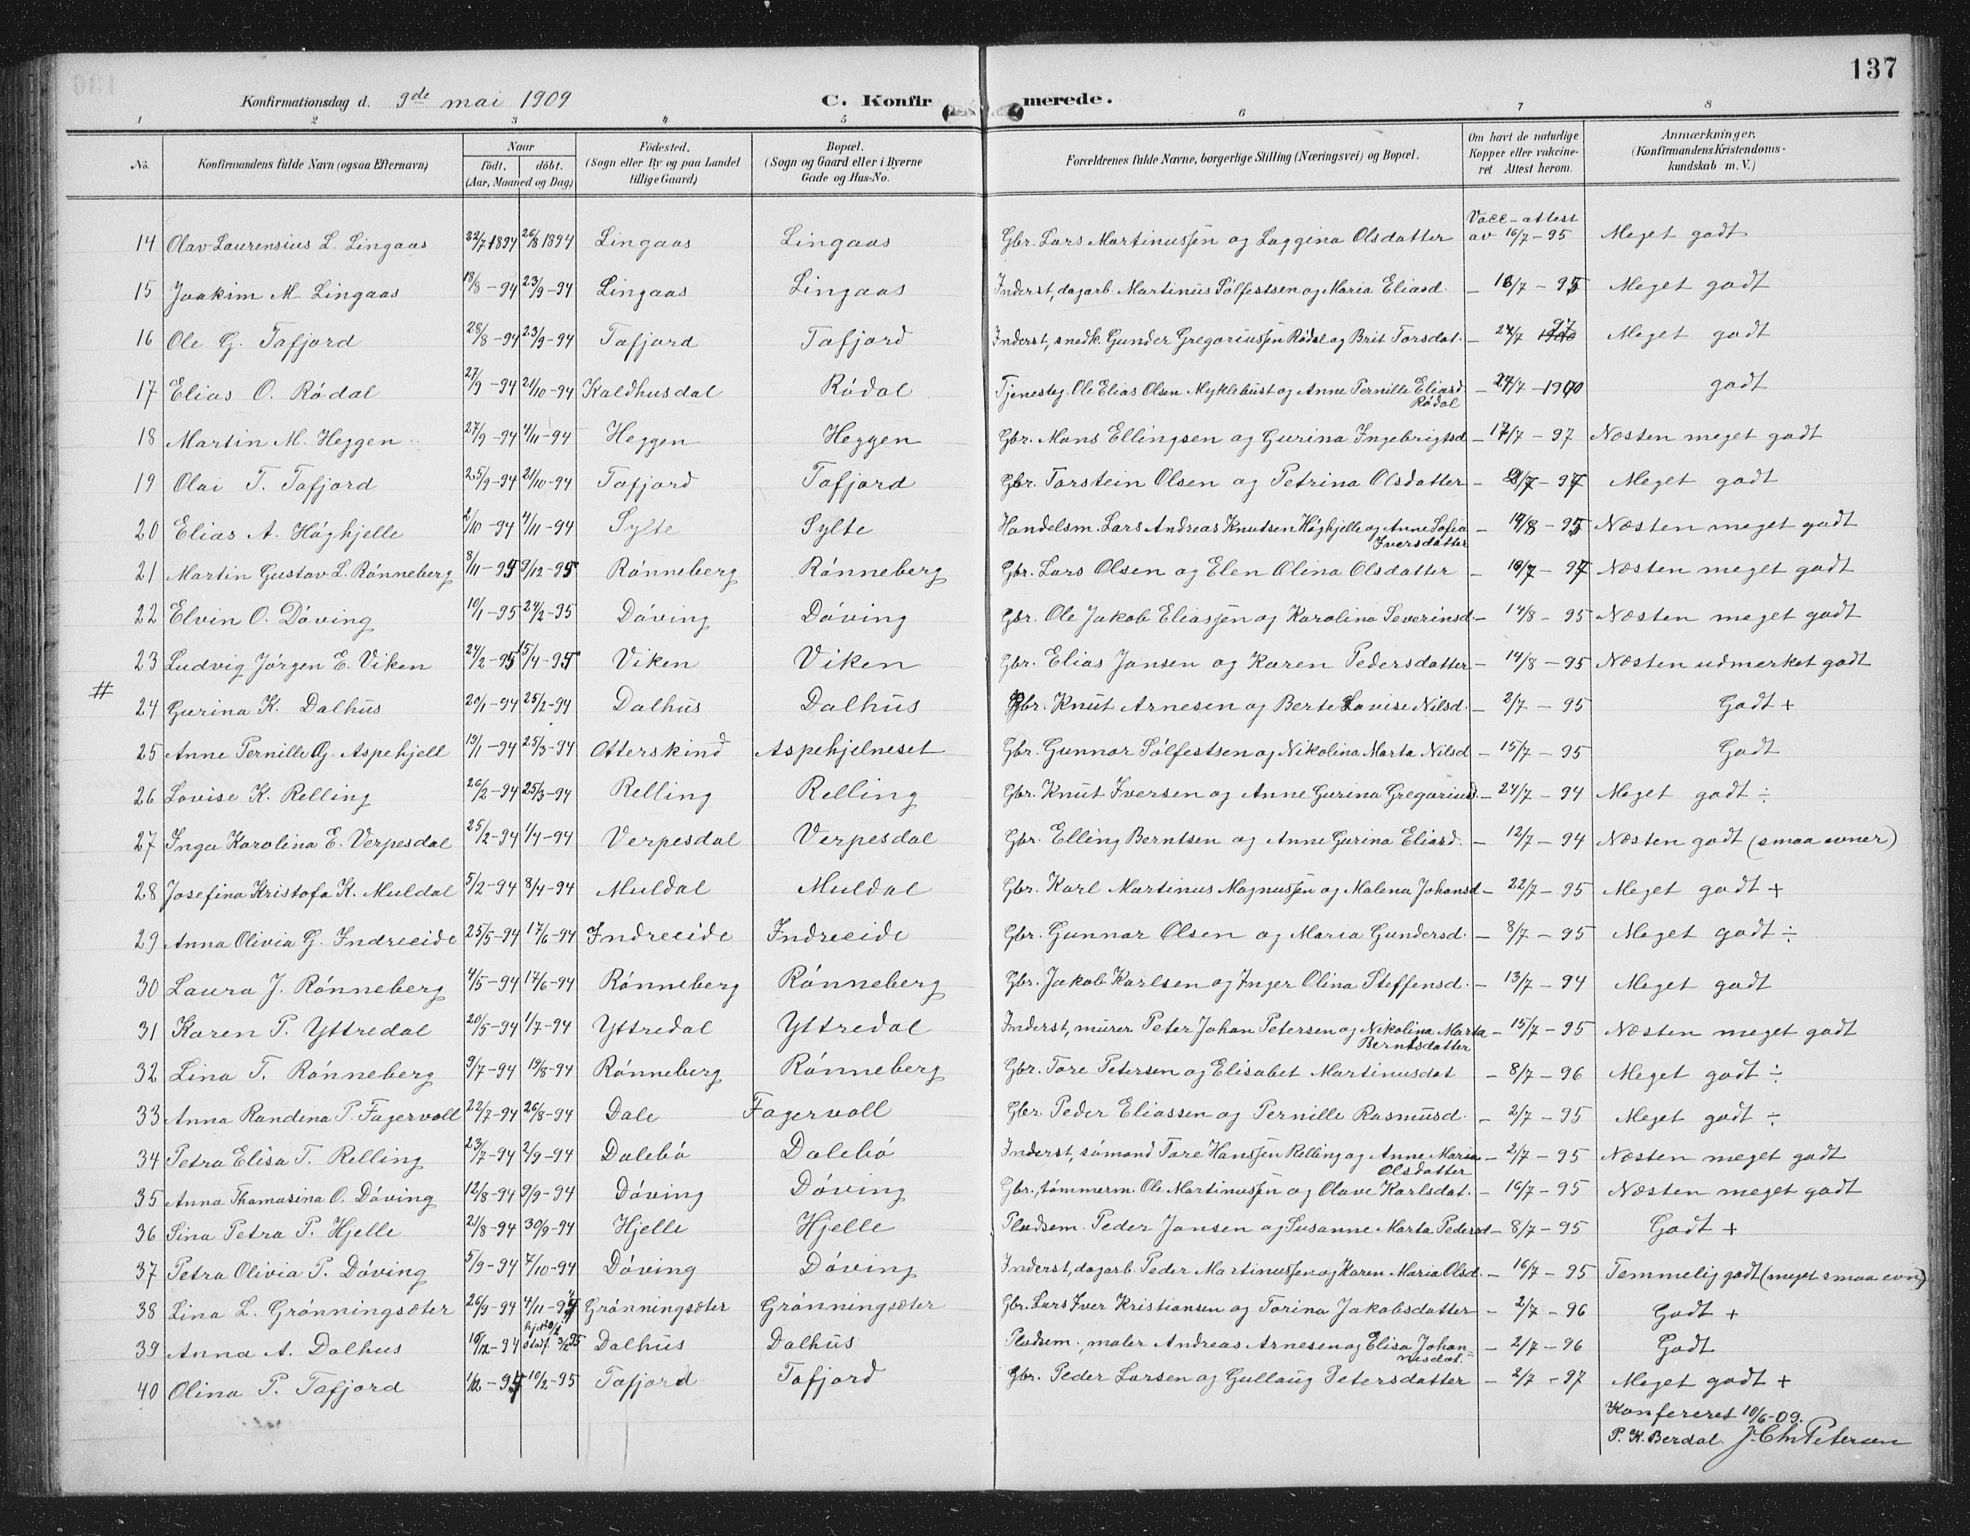 137
Konfirmationsdag d. 9de mai 1909 C. Konfirmerede.
1 2 3 4 5 6 7 8
No. Konfirmandens fulde Navn (ogsaa Efternavn) Naar født. døbt. (Aar, Maaned og Dag) Fødested. (Sogn eller By og paa Landet tillige Gaard) Bopæl. (Sogn og Gaard eller i Byerne Gade og Hus-No. Forældrenes fulde Navne, borgerlige Stilling (Næringsvei) og Bopæl. Om havt de naturlige Kopper eller vakcineret Attest herom. Anmærkninger. (Konfirmandens Kristendomskundskab m. V.)
14 Olav Laurensius L. Lingaas 22/7 1894 26/8 1894 Lingaas Lingaas Gbr. Lars Martinussen og Laggina Olsdatter Vacc-attest av 16/7 - 95 Meget godt
15 Joakim M. Lingaas 18/8 - 94 23/9 - 94 Lingaas Lingaas Inderst, dagarb. Martinus Sølfestsen og Maria Eliasd. - 16/7 - 95 Meget godt
16 Ole G. Tafjord 28/8 - 94 23/9 - 94 Tafjord Tafjord Inderst, snedk. Gunder Gregoriussen Rødal og Brit Torsdat. - 27/7 97 1900 Meget godt
17 Elias O. Rødal 27/9 - 94 21/10 - 94 Kaldhusdal Rødal Tjenestg. Ole Elias Olsen Myklebust og Anne Pernille Eliasd Rødal - 27/7 - 1900 godt
18 Martin M. Heggen 27/9 - 94 4/11 - 94 Heggen Heggen Gbr. Mons Ellingsen og Gurina Ingebrigtsd - 17/7 - 97 Næsten meget godt
19 Olai T. Tafjord 25/9 - 94 21/10 - 94 Tafjord Tafjord Gbr. Torstein Olsen og Petrina Olsdatter - /7 - 97 Meget godt
20 Elias A. Høghjelle 2/10 - 94 4/11 - 94 Sylte Sylte Handelsm. Lars Andreas Knutsen Høghjelle og Anne Sofia Iversdatter - 14/8 - 95 Næsten meget godt
21 Martin Gustav L. Rønneberg 8/11 - 94 9/12 - 95 Rønneberg Rønneberg Gbr. Lars Olsen og Elen Olina Olsdatter - /7 - 97 Næsten meget godt
22 Elvin O. Døving 10/1 - 95 24/2 - 95 Døving Døving Gbr. Ole Jakob Eliassen og Karolina Severinsd - 14/8 - 95 Næsten meget godt
23 Ludvig Jørgen E. Viken 24/2 - 95 15/4 - 95 Viken Viken Gbr. Elias Jansen og Karen Pedersdatter - 14/8 - 95 Næsten udmerket godt
# 24 Gurina K. Dalhus 20/1 - 94 25/2 - 94 Dalhus Dalhus Gbr. Knut Arnesen og Berte Lovise Nilsd. - 2/7 - 95 Godt +
25 Anne Pernille G. Aspehjell 19/1 - 94 25/3 - 94 Otterskind Aspehjelneset Gbr. Gunnar Sølfestsen og Nikolina Marta Nilsd - 15/7 - 95 Godt
26 Lovise K. Relling 26/2 - 94 25/3 - 94 Relling Relling Gbr. Knut Iversen og Anne Gurina Gregoriusd. - 24/7 - 94 Meget godt ÷
27 Inga Karolina E. Verpesdal 25/2 - 94 1/4 - 94 Verpesdal Verpesdal Gbr. Elling Berntsen og Anne Gurina Eliasd. - 12/7 - 94 Næsten godt (smaa evner)
28 Josefina Kristofa K. Muldal 5/2 - 94 8/4 - 94 Muldal Muldal Gbr. Karl Martinus Magnussen og Malena Johansd - 22/7 - 95 Meget godt +
29 Anna Olivia G. Indreeide 25/5 - 94 17/6 - 94 Indreeide Indreeide Gbr. Gunnar Olsen og Maria Gundersd. - 8/7 - 95 Meget godt ÷
30 Laura J. Rønneberg 4/5 - 94 17/6 - 94 Rønneberg Rønneberg Gbr. Jakob Karlsen og Inger Olina Steffensd. - 13/7 - 94 Meget godt
31 Karen P. Yttredal 20/5 - 94 1/7 - 94 Yttredal Yttredal Inderst, murer Peter Johan Petersen og Nikolina Marta Berntsdatter - 15/7 - 95 Næsten meget godt
32 Lina T. Rønneberg 9/7 - 94 19/8 - 94 Rønneberg Rønneberg Gbr. Tore Petersen og Elisabet Martinusdat - 8/7 - 96 Meget godt ÷
33 Anna Randina P. Fagervoll 22/7 - 94 26/8 - 94 Dale Fagervoll Gbr. Peder Eliassen og Pernille Rasmusd. - 2/7 - 95 Meget godt ÷
34 Petra Elisa T. Relling 23/7 - 94 2/9 - 94 Dalebø Dalebø Inderst, sømand Tore Hanssen Relling og Anne Maria Olsdatter - 2/7 - 95 Næsten meget godt
35 Anna Thomasina O. Døving 12/8 - 94 9/9 - 94 Døving Døving Gbr., tømmerm. Ole Martinussen og Olave Karlsdat. - 16/7 - 95 Næsten meget godt
36 Sina Petra P. Hjelle 21/8 - 94 30/9 - 94 Hjelle Hjelle Pladsem. Peder Jansen og Susanne Marta Pedersd - 8/7 - 95 Godt +
37 Petra Olivia P. Døving 5/9 - 94 7/10 - 94 Døving Døving Inderst, dagarb. Peder Martinussen og Karen Maria Olsd. - 16/7 - 95 Temmelig godt (meget smaa evn)
38 Lina L. Grønningsæter 26/9 - 94 4/11 - 94 Grønningsæter Grønningsæter Gbr. Lars Iver Kristiansen og Torina Jakobsdatter - 2/7 - 96 Godt +
39 Anna A. Dalhus 10/12 - 94 hjd 20/1 stadf. 3/2 95 Dalhus Dalhus Pladsem. maler Andreas Arnesen og Elisa Johannesdat. - 2/7 - 96 Godt
40 Olina P. Tafjord 1/2 - 95 10/2 - 95 Tafjord Tafjord Gbr. Peder Larsen og Gullaug Petersdatter - 2/7 - 97 Meget godt +
Konfereret 10/6 - 09.
P. K. Berdal. J. Chr Petersen